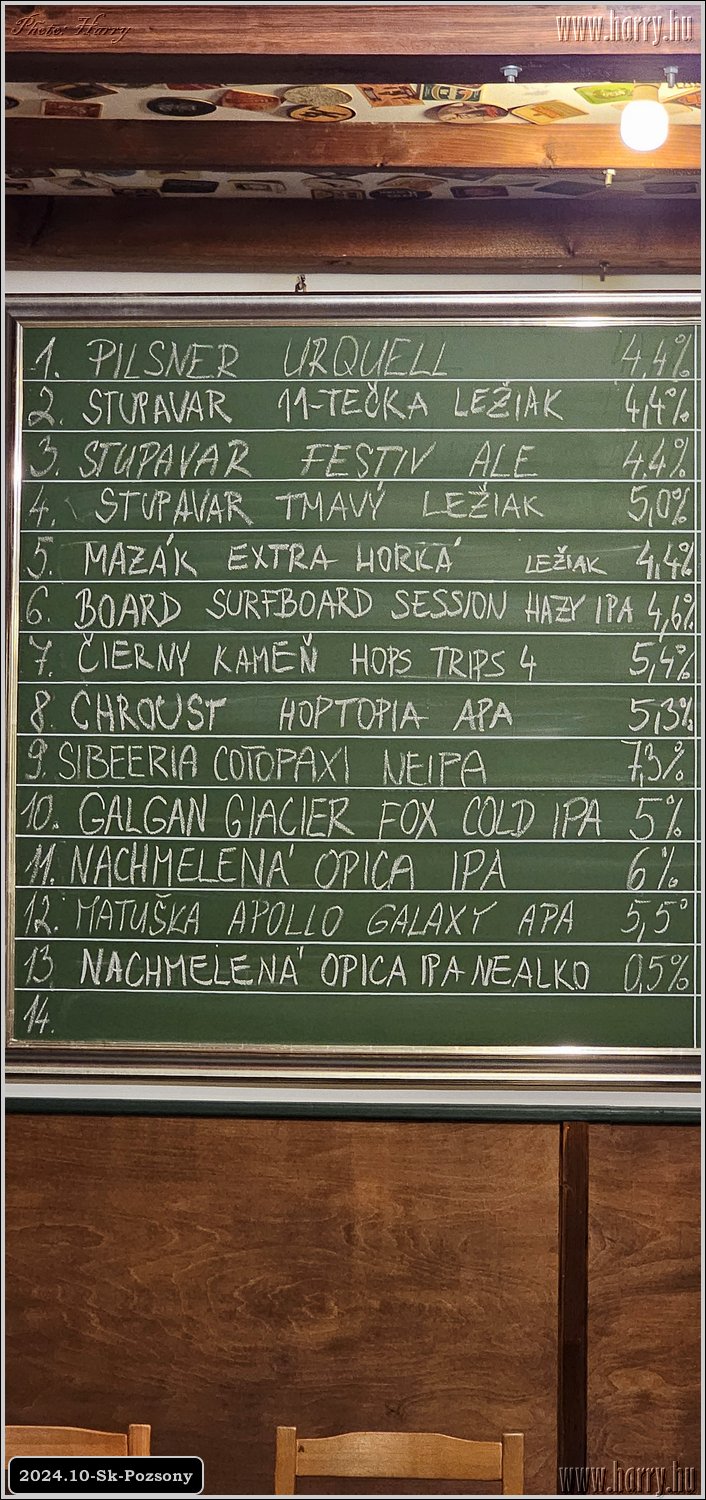 Photo: Harry
www.harry.hu
1. PILSNER URQUELL 4.4%
2. STUPAVAR 11-TEČKA LEŽIAK 4,4%
3. STUPAVAR FESTIV ALE 4.4%
4. STUPAVAR TMAVÝ LEŽIAK 5,0%
5. MAZÁK EXTRA HORKÁ LEŽIAK 4,4%
6. BOARD SURFBOARD SESSION HAZY IPA 4,6%
7. ČIERNY KAMEŇ HOPS TRIPS 4 5,4%
8. CHROUST HOPTOPIA APA 5,3%
9. SIBEERIA COTOPAXI NEIPA 7,3%
10. GALGAN GLACIER FOX COLD IPA 5%
11. NACHMELENÁ OPICA IPA 6%
12. MATUŠKA APOLLO GALAXY APA 5,5°
13. NACHMELENÁ OPICA IPA NEALKO 0,5%
14.
2024.10-Sk-Pozsony
www.harry.hu